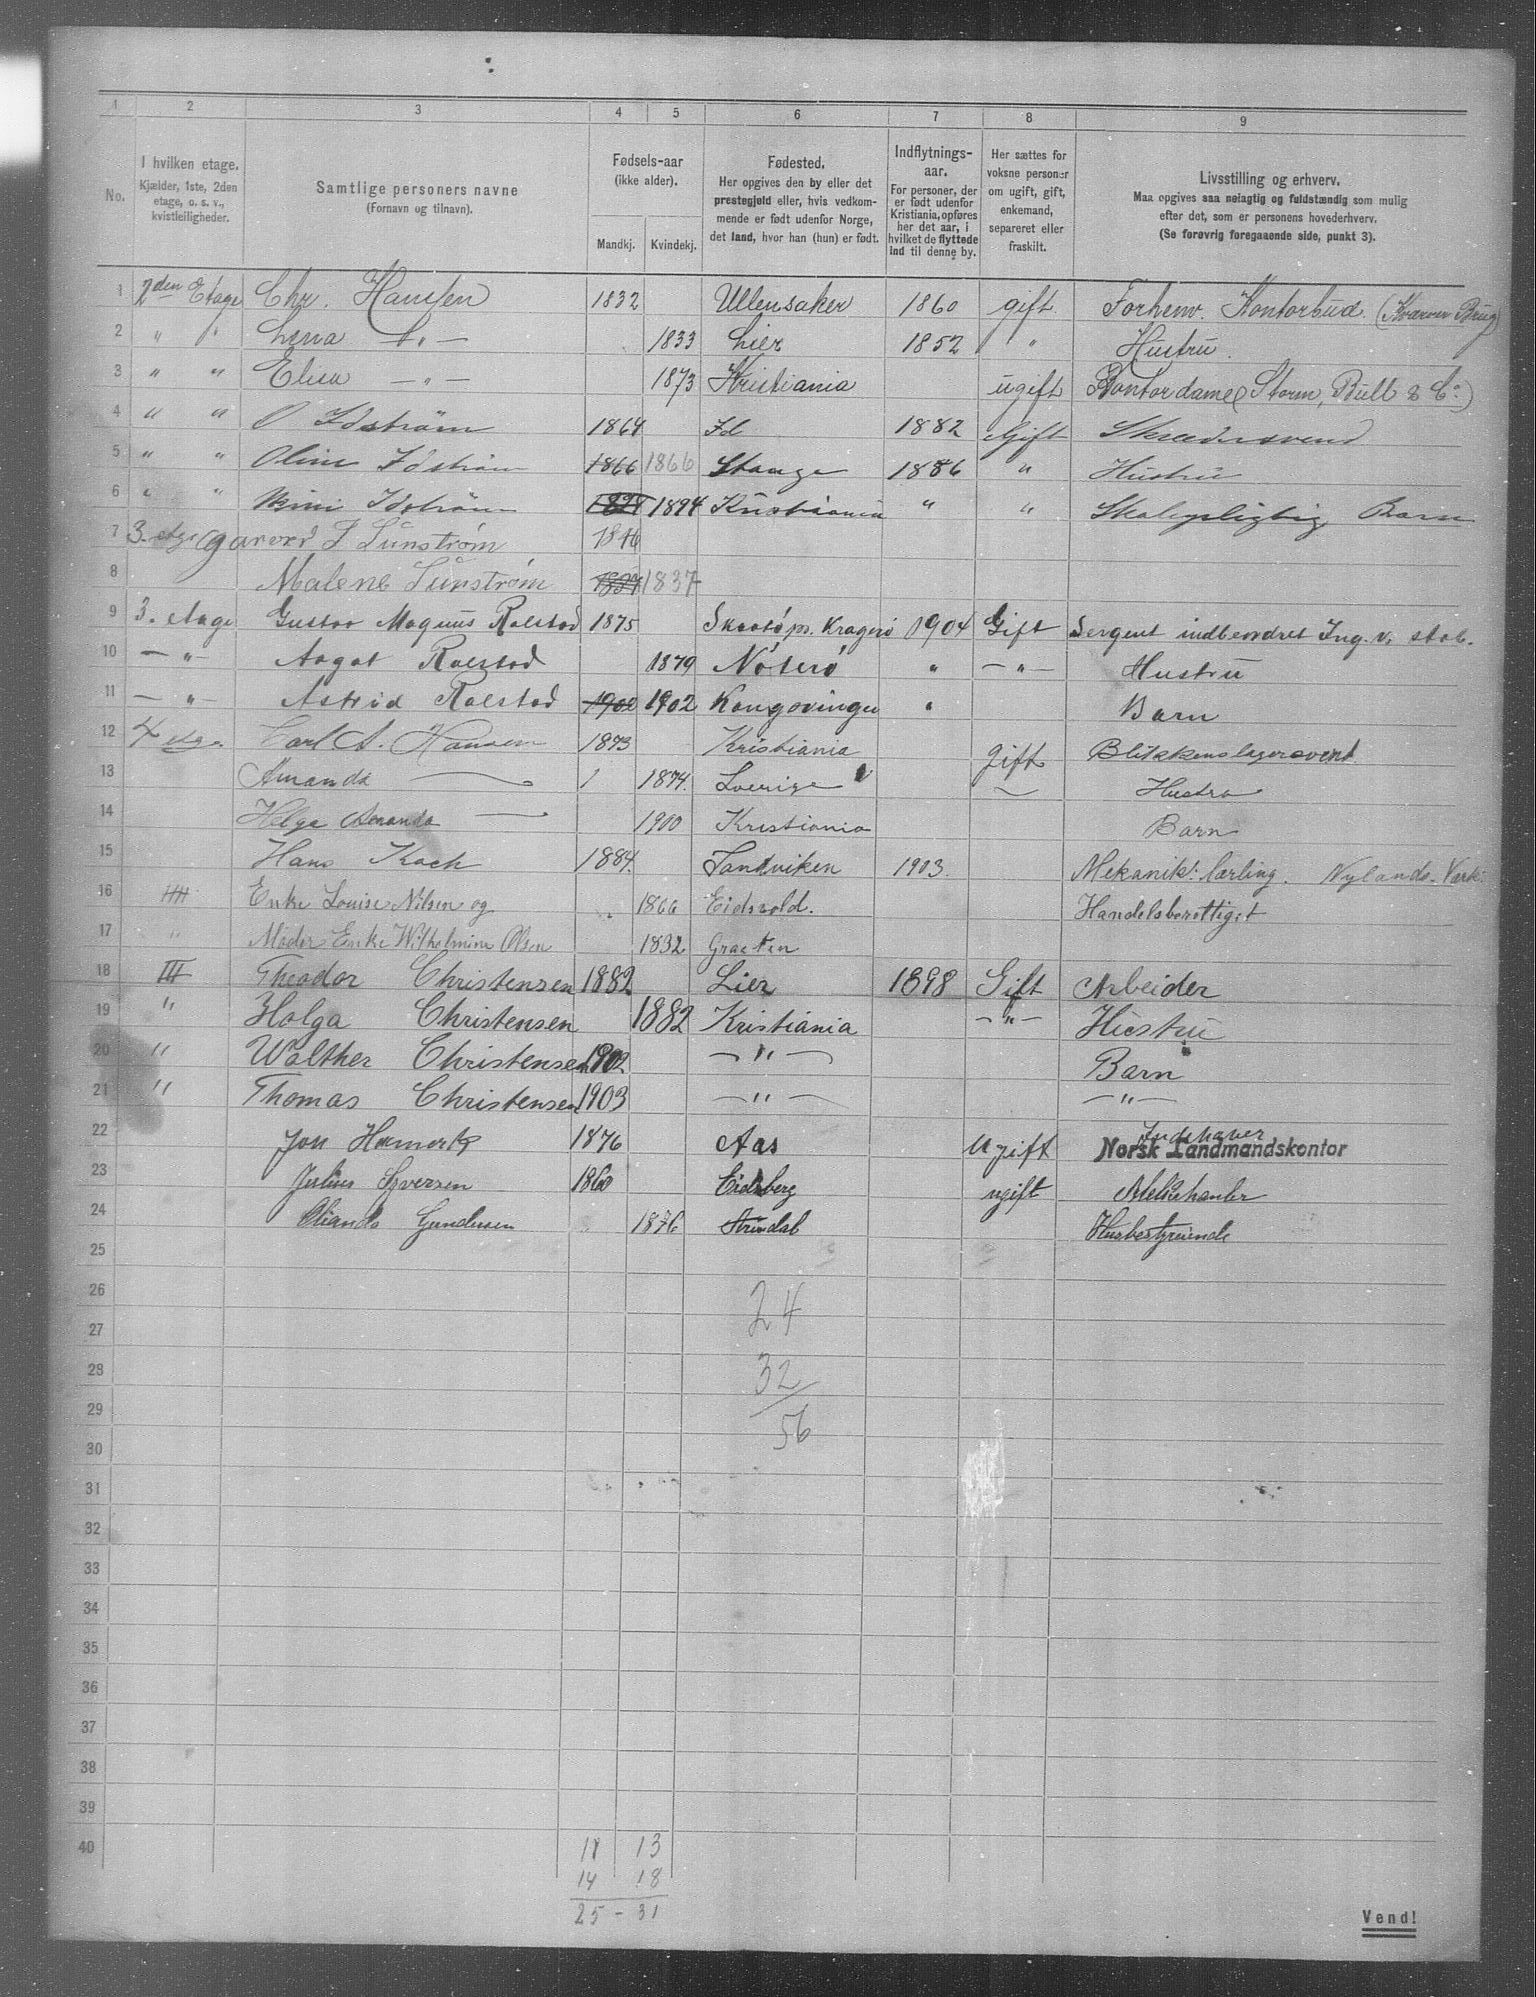 1 2 3 4 5 6 7 8 9
No. I hvilken etage. Kjælder, 1ste, 2den etage, o. s. v., kvistleiligheder. Samtlige personers navne (Fornavn og tilnavn). Fødsels-aar (ikke alder). Mandkj. Kvindekj. Fødested. Her opgives den by eller det prestegjeld eller, hvis vedkommende er født udenfor Norge, det land, hvor han (hun) er født. Indflytnings-aar. For personer, der er født udenfor Kristiania, opføres her det aar, i hvilket de flyttede ind til denne by. Her sættes for voksne personer om ugift, gift, enkemand, separeret eller fraskilt. Livsstilling og erhverv. Maa opgives saa nøiagtig og fuldstændig som mulig efter det, som er personens hovederhverv. (Se forøvrig foregaaende side, punkt 3).
1 2den Etage Chr. Hansen 1832 Ullensaker 1860 gift Forhenv. Kontorbud (Kværner Brug)
2 " " Lena —"— 1833 Lier 1852 " Hustru.
3 " " Elisa —"— 1873 Kristiania ugift Kontordame (Storm, Bull & Co)
4 " " O Idstrøm 1864 Id 1882 Gift Skrædersvend
5 " " Oline Idstrøm 1866 1866 Stange 1886 " Hustru
6 " " Idstrøm 1894 Kristiania " " Skolepligtig Barn
7 3. etge J Lunstrøm 1846
8 Malene Lunstrøm 1837 1837
9 3. Etage Gustav Magnus Rolstad 1875 Skaatø ps. Kragerø 1904 Gift Sergent indbeordret Ing. v. stab.
10 —"— Aagot Rolstad 1879 Nøterø " —"— Hustru
11 —"— Astrid Rolstad 1902 1902 Kongsvinger " Barn
12 4 etge. Carl A. Hansen 1873 Kristiania gift Blikkenslagersvent
13 Amanda — 1874. Sverige — Hustru
14 Helga Amanda — 1900 Kristiania Barn
15 Hans Koch 1884. Sandviken 1903. Mekanik: lærling. Nylands Værk:
16 Enke Louise Nilsen og 1866 Eidsvold. Handelsberettiget
17 " Moder Enke Wilhelmine Olsen 1832 Græsten
18 III Theodor Christensen 1882 Lier 1898 Gift Arbeider
19 " Holga Christensen 1882 Kristiania —"— Hustru
20 " Walther Christensen 1902 —"— Barn
21 " Thomas Christensen 1903 —"— —"—
22 Jon Hamark 1876 Aas Ugift Indehaver Norsk Landmandskontor
23 Julius Syversen 1860 Eidsberg ugift Melkehanler
24 Gundersen 1876 Husbestyreinde
25
26 24
27
28 32
29 56
30
31
32
33
34
35
36
37
38
39
40 11 13
14 18
25 - 31
Vend!